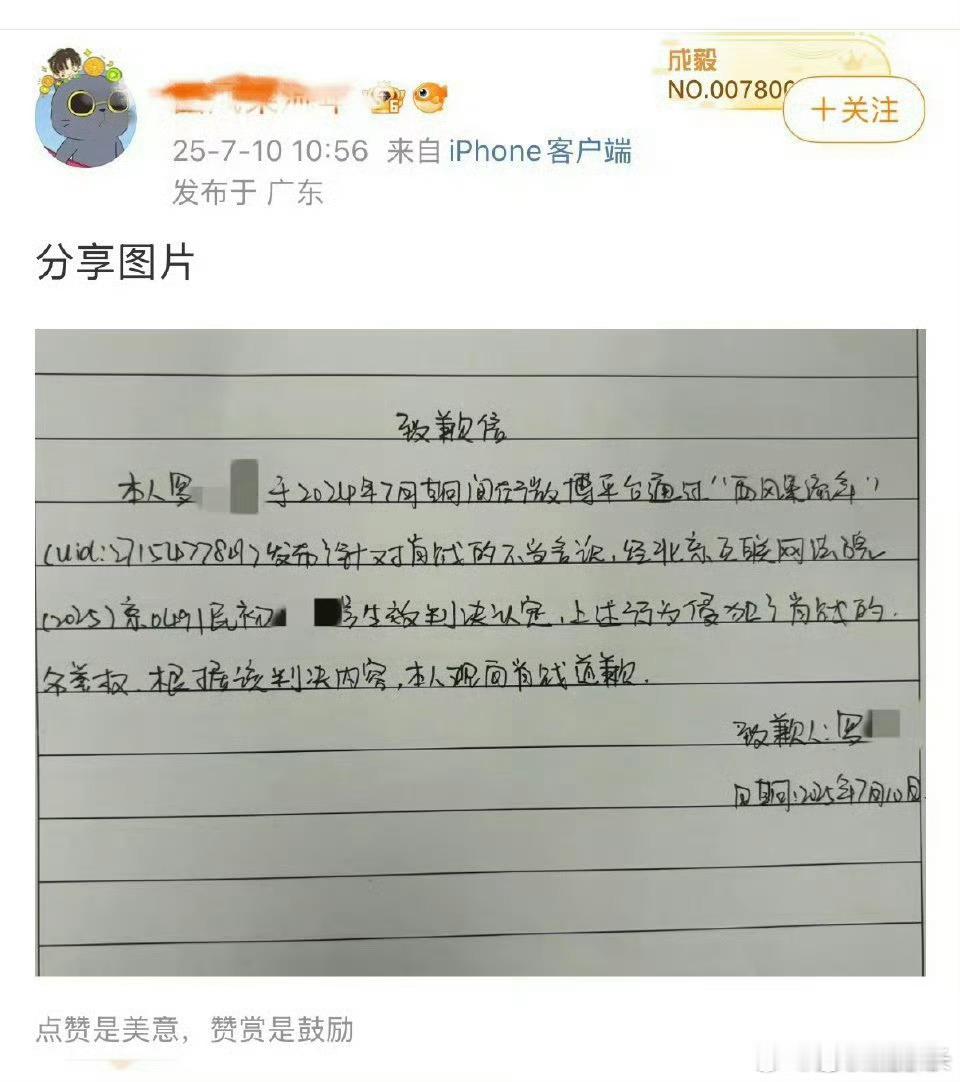 成毅
NO.007800
+关注
25-7-10 10:56 来自 iPhone客户端
发布于 广东
分享图片
致歉信
本人罗 于2024年7月期间在微博平台通过"西风果流年"
(uid:2715477849)发布了针对肖战的不当言论,经北京互联网法院
(2025)京0491民初 号生效判决认定,上述行为侵犯了肖战的
名誉权.根据该判决内容,本人现向肖战道歉.
致歉人:罗
日期:2025年7月10日
点赞是美意,赞赏是鼓励